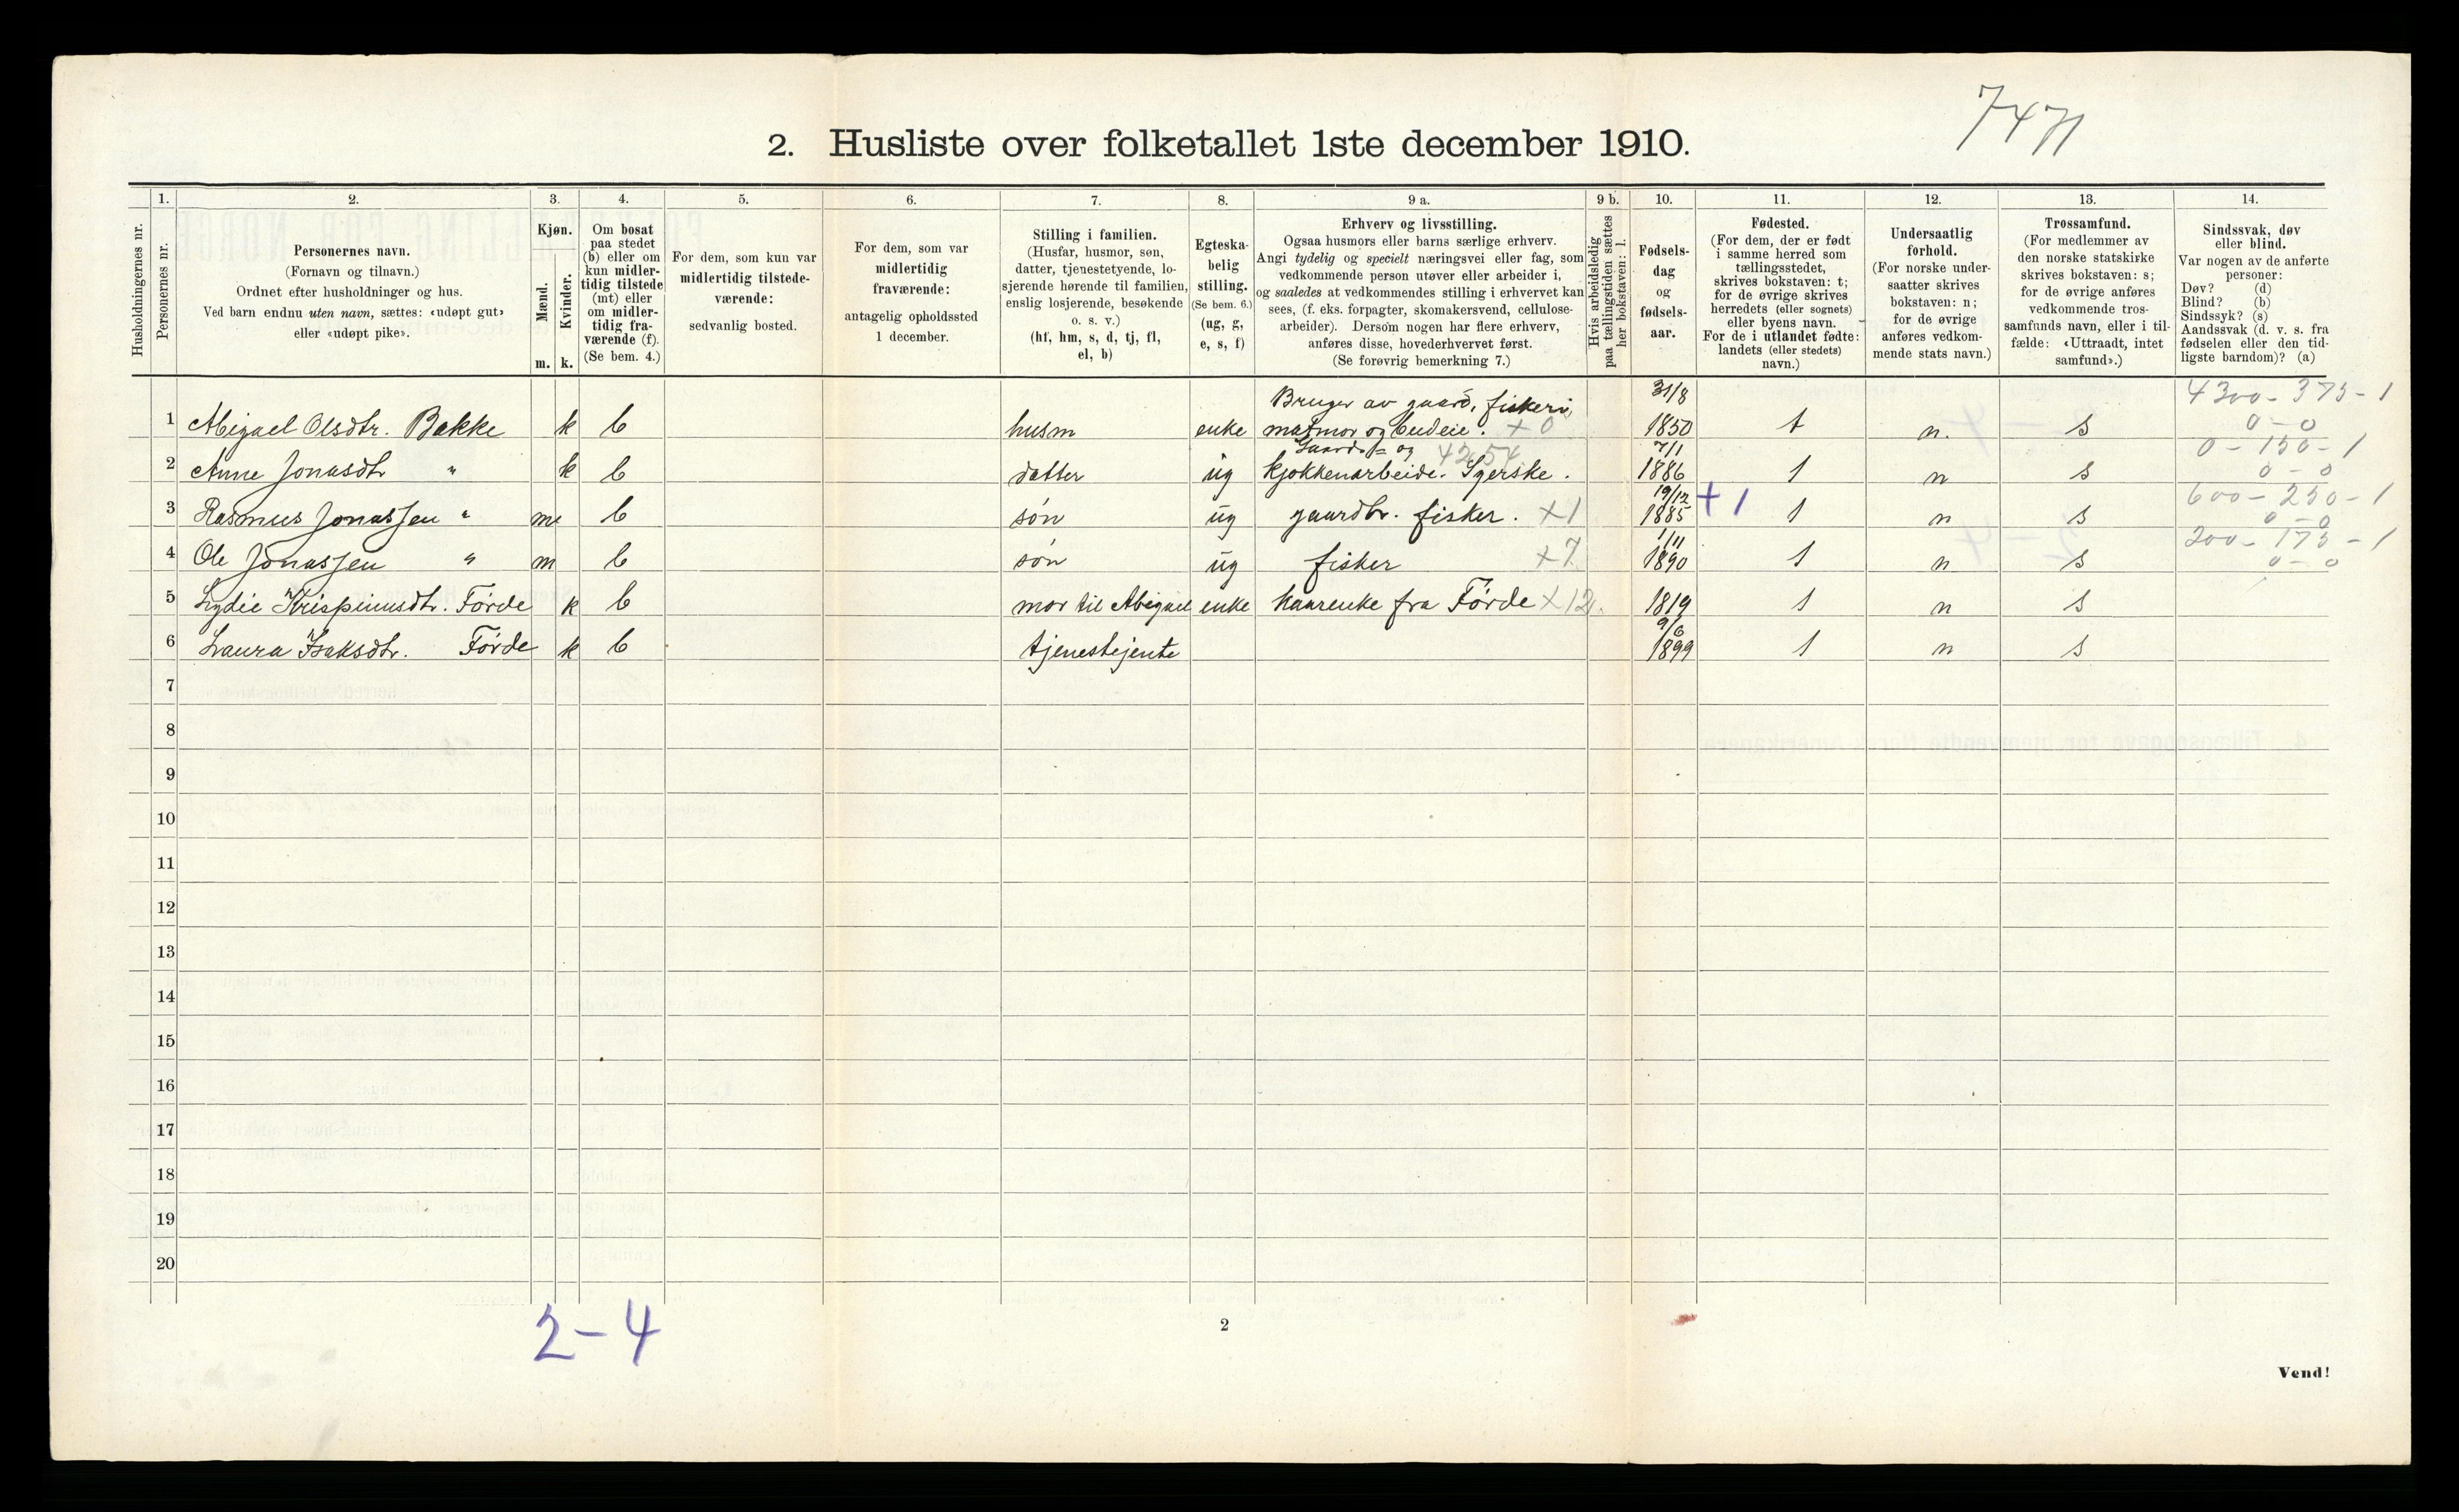 7471
2. Husliste over folketallet 1ste december 1910.
Husholdningernes nr.
1.
Personernes nr.
2.
Personernes navn.
(Fornavn og tilnavn.)
Ordnet efter husholdninger og hus.
Ved barn endnu uten navn, sættes: «udøpt gut»
eller «udøpt pike».
3.
Kjøn.
Mænd.
Kvinder.
m. k.
4.
Om bosat
paa stedet
(b) eller om
kun midler-
tidig tilstede
(mt) eller
om midler-
tidig fra-
værende (f).
(Se bem. 4.)
5.
For dem, som kun var
midlertidig tilstede-
værende:
sedvanlig bosted.
6.
For dem, som var
midlertidig
fraværende:
antagelig opholdssted
1 december.
7.
Stilling i familien.
(Husfar, husmor, søn,
datter, tjenestetyende, lo-
sjerende hørende til familien,
enslig losjerende, besøkende
o. s. v.)
(hf, hm, s, d, tj, fl,
el, b)
8.
Egteska-
belig
stilling.
(Se bem. 6.)
(ug, g,
e, s, f)
9 a.
Erhverv og livsstilling.
Ogsaa husmors eller barns særlige erhverv.
Angi tydelig og specielt næringsvei eller fag, som
vedkommende person utøver eller arbeider i,
og saaledes at vedkommendes stilling i erhvervet kan
sees, (f. eks. forpagter, skomakersvend, cellulose-
arbeider). Dersom nogen har flere erhverv,
anføres disse, hovederhvervet først.
(Se forøvrig bemerkning 7.)
9 b.
Hvis arbeidsledig
paa tællingstiden sættes
her bokstaven: l.
10.
Fødsels-
dag
og
fødsels-
aar.
11.
Fødested.
(For dem, der er født
i samme herred som
tællingsstedet,
skrives bokstaven: t;
for de øvrige skrives
herredets (eller sognets)
eller byens navn.
For de i utlandet fødte:
landets (eller stedets)
navn.)
12.
Undersaatlig
forhold.
(For norske under-
saatter skrives
bokstaven: n;
for de øvrige
anføres vedkom-
mende stats navn.)
13.
Trossamfund.
(For medlemmer av
den norske statskirke
skrives bokstaven: s;
for de øvrige anføres
vedkommende tros-
samfunds navn, eller i til-
fælde: «Uttraadt, intet
samfund».)
14.
Sindssvak, døv
eller blind.
Var nogen av de anførte
personer:
Døv? (d)
Blind? (b)
Sindssyk? (s)
Aandssvak (d. v. s. fra
fødselen eller den tid-
ligste barndom)? (a)
Bruger av gaard, fiskeri, 31/8 4300 - 375 - 1
1 Abigael Olsdtr. Bakke k b husm enke matmor og budeie. +0 1850 t n. s 0 - 0
Gaards= og 4254 7/1 0 - 150 - 1
2 Anne Jonasdtr " k b datter ug kjøkkenarbeide. Syerske. 1886 t n s 0 - 0
19/12 600 - 250 - 1
3 Rasmus Jonassen " m b søn ug gaardbr. fisker. +1 1885 +1 t n s 0 - 0
1/11 200 - 175 - 1
4 Ole Jonassen " m b søn ug fisker +7 1890 t n s 0 - 0
5 Lydie Krispinusdtr. Førde k b mor til Abigael enke kaarenke fra Førde +12 1819 t n s
9/6
6 Laura Isaksdtr. Førde k b tjenestejente 1899 t n s
7
8
9
10
11
12
13
14
15
16
17
18
19
20
2 - 4
2
Vend!